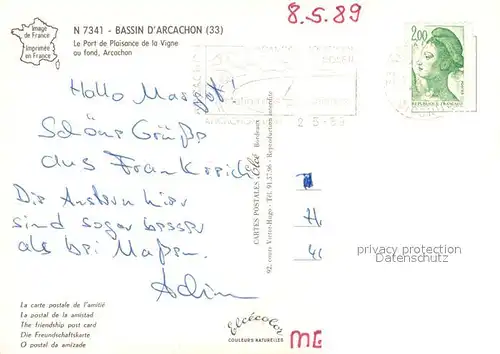 Image
de France
Imprimée
en France
N 7341 - BASSIN D'ARCACHON (33)
Le Port de Plaisance de la Vigne
au fond, Arcachon
8.5.89
2,00
REPUBLIQUE FRANÇAISE
2 5-89
Hallo Margot!
Schöne Grüße
aus Frankreich
Die Austern hier
sind sogar besser
als bei Maßen.
Achim
CARTES POSTALES Elcé Bordeaux
92, cours Victor-Hugo - Tél. 91.37.96 - Reproduction interdite
H.
privacy protection
La carte postale de l'amitié
La postal de la amistad
The friendship post card
Die Freundschaftskarte
O postal da amizade
Elcécolor
COULEURS NATURELLES
ME